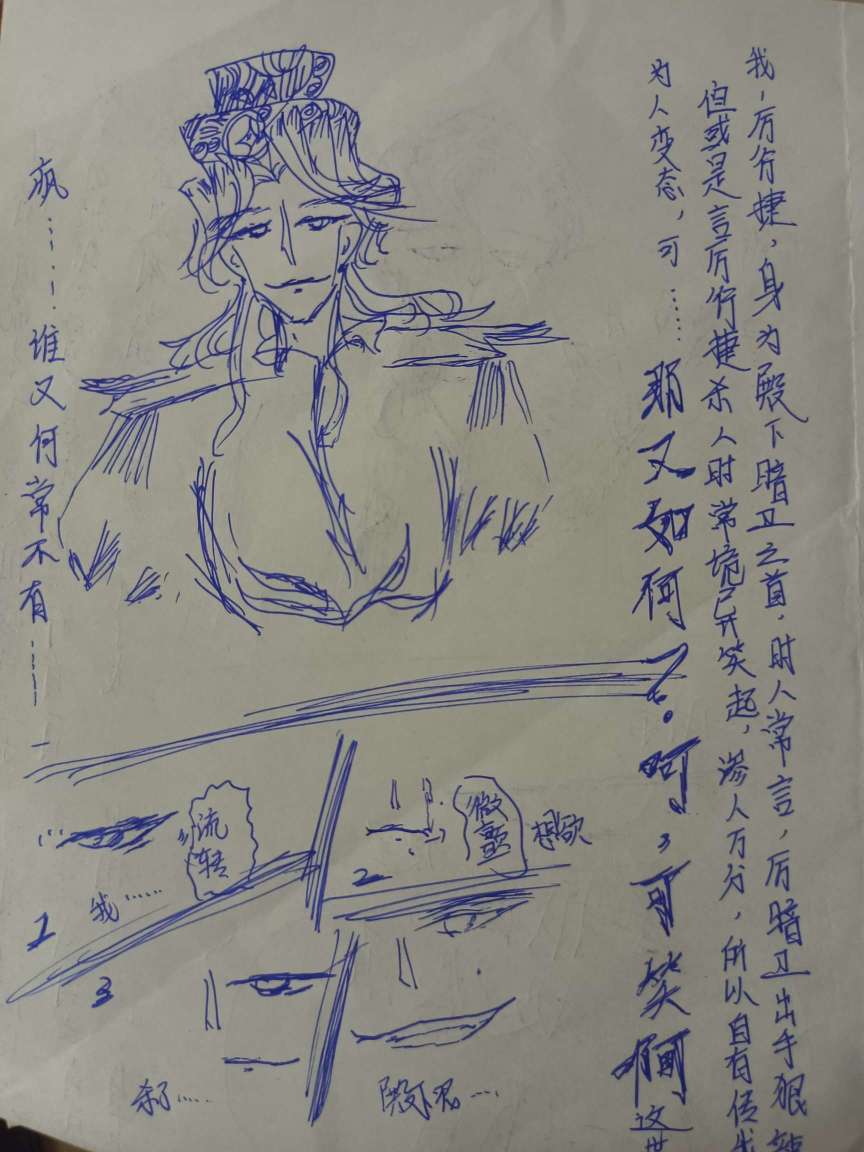 我,厉行捷,身为殿下暗卫之首,时人常言,厉暗卫出手狠辣
但或是言厉行捷杀人时常境已笑起,渗人万分,所以自有传
为人变态,可……
那又如何?呵,可笑啊这世
疯……谁又何常不有……
流转
我……
1
微
想欲
2
3
杀了……
殿下君…